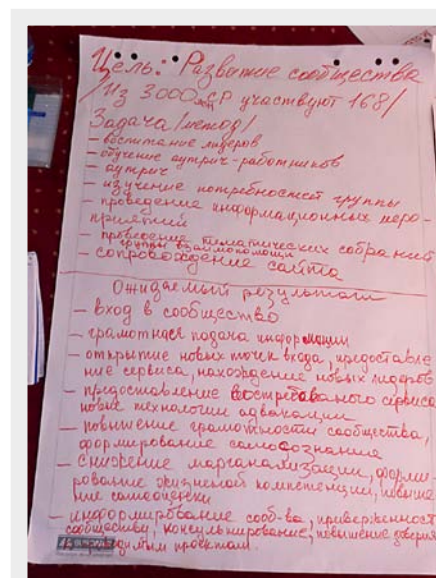 Цель: Развитие сообщества
/из 3000 СР участвуют 168/
Задача/метод/
- воспитание лидеров
- обучение аутрич-работников
- аутрич
- изучение потребностей группы
- проведение информационных меро-
приятий
- проведение тематических собраний
группы взаимопомощи
- сопровождение сайта
Ожидаемый результат
- вход в сообщество
- грамотная подача информации
- открытие новых точек входа, предоставле
ние сервиса, нахождение новых лидеров
- предоставление востребованого сервиса
новые технологии адвокации
- повышение грамотности сообщества,
формирование самосознания
- снижение маргинализации, форми-
рование жизненой компетенции, повыше
ние самооценки
- информирование сооб-ва, приверженность
сообществу, консультирование, повышение доверия
проектам.